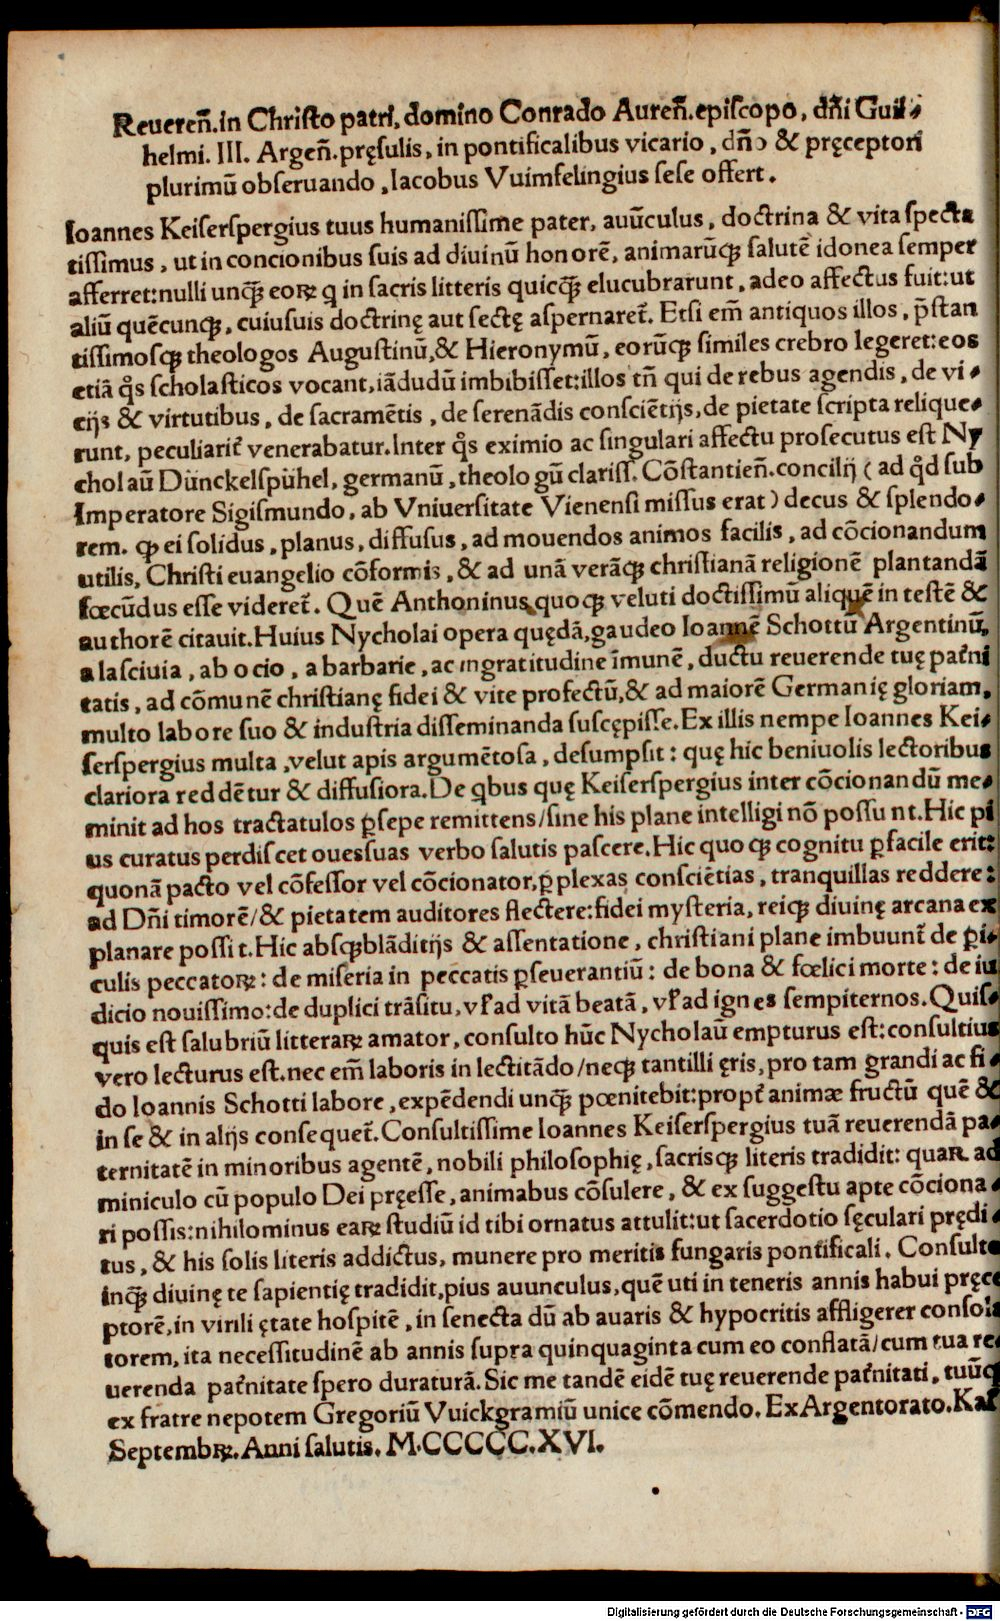 Reuereñ.in Chriſto patri, domino Conrado Aureñ.epiſcopo, dñi Guil⸗
helmi. III. Argeñ.pręſulis, in pontificalibus vicario, dño & pręceptori
plurimū obſeruando, Iacobus Vuimfelingius ſeſe offert.
Ioannes Keiſerſpergius tuus humaniſſime pater, auūculus, doctrina & vita ſpecta
tiſſimus, ut in concionibus ſuis ad diuinū honorē, animarūqꝫ ſalutē idonea ſemper
afferret:nulli unqꝫ̄ eoꝝ q in ſacris litteris quicqꝫ̄ elucubrarunt, adeo affectus fuit:ut
aliū quēcunqꝫ, cuiuſuis doctrinę aut ſectę aſpernaret̄. Etſi em̄ antiquos illos, p̄ſtan
tiſſimoſqꝫ theologos Auguſtinū,& Hieronymū, eorūqꝫ ſimiles crebro legeret:eos
etiā q̊s ſcholaſticos vocant,iādudū imbibiſſet:illos tñ qui de rebus agendis, de vi⸗
cijs & virtutibus, de ſacramētis, de ſerenādis conſciētijs,de pietate ſcripta relique⸗
runt, peculiarit̄ venerabatur.Inter q̊s eximio ac ſingulari affectu proſecutus eſt Ny
cholaū Dünckelſpühel, germanū, theologū clariſſ. Cōſtantieñ.concilij ( ad q̊d ſub
Imperatore Sigiſmundo, ab Vniuerſitate Vienenſi miſſus erat ) decus & ſplendo⸗
rem. qꝫ ei ſolidus, planus, diffuſus, ad mouendos animos facilis, ad cōcionandum
utilis, Chriſti euangelio cōformis, & ad unā verāqꝫ chriſtianā religionē plantandā
fœcūdus eſſe videret̄. Quē Anthoninus quoqꝫ veluti doctiſſimū aliquē in teſtē &
authorē citauit.Huius Nycholai opera quędā,gaudeo Ioannē Schottū Argentinū,
a laſciuia, ab ocio, a barbarie, ac ingratitudine īmunē, ductu reuerende tuę pat̄ni
tatis, ad cōmunē chriſtianę fidei & vite profectū,& ad maiorē Germanię gloriam,
multo labore ſuo & induſtria diſſeminanda ſuſcępiſſe.Ex illis nempe Ioannes Kei⸗
ſerſpergius multa, velut apis argumētoſa, deſumpſit: quę hic beniuolis lectoribus
clariora reddētur & diffuſiora.De qbus quę Keiſerſpergius inter cōcionandū me⸗
minit ad hos tractatulos ꝑſepe remittens/ſine his plane intelligi nō poſſunt.Hic pi
us curatus perdiſcet oues ſuas verbo ſalutis paſcere.Hic quoqꝫ cognitu ꝑfacile erit:
quonā pacto vel cōfeſſor vel cōcionator,ꝑplexas conſciētias, tranquillas reddere:
ad Dñi timorē/& pietatem auditores flectere:fidei myſteria, reiqꝫ diuinę arcana ex
planare poſſit.Hic abſqꝫ blāditijs & aſſentatione, chriſtiani plane imbuunt̄ de ꝑi⸗
culis peccatoꝝ: de miſeria in peccatis ꝑſeuerantiū: de bona & fœlici morte: de iu
dicio nouiſſimo:de duplici trāſitu, vł ad vitā beatā, vł ad ignes ſempiternos.Quiſ⸗
quis eſt ſalubriū litteraꝝ amator, conſulto hūc Nycholaū empturus eſt:conſultius
vero lecturus eſt.nec em̄ laboris in lectitādo/neqꝫ tantilli ęris, pro tam grandi ac fi⸗
do Ioannis Schotti labore, expēdendi unqꝫ̄ pœnitebit:propt̄ animæ fructū quē &
in ſe & in alijs conſequet̄.Conſultiſſime Ioannes Keiſerſpergius tuā reuerendā pa⸗
ternitatē in minoribus agentē, nobili philoſophię, ſacriſqꝫ literis tradidit: quaꝝ ad
miniculo cū populo Dei pręeſſe, animabus cōſulere, & ex ſuggeſtu apte cōciona⸗
ri poſſis:nihilominus eaꝝ ſtudiū id tibi ornatus attulit:ut ſacerdotio ſęculari prędi⸗
tus, & his ſolis literis addictus, munere pro meritis fungaris pontificali. Conſulto
inqꝫ̄ diuinę te ſapientię tradidit,pius auunculus,quē uti in teneris annis habui pręce
ptorē,in virili ętate hoſpitē, in ſenecta dū ab auaris & hypocritis affligerer conſola
torem, ita neceſſitudinē ab annis ſupra quinquaginta cum eo conflatā/cum tua re⸗
uerenda pat̄nitate ſpero duraturā.Sic me tandē eidē tuę reuerende pat̄nitati, tuūqꝫ
ex fratre nepotem Gregoriū Vuickgramiū unice cōmendo. Ex Argentorato.Kał
Septembꝝ. Anni ſalutis. M.CCCCC.XVI.
Digitalisierung gefördert durch die Deutsche Forschungsgemeinschaft - DFG